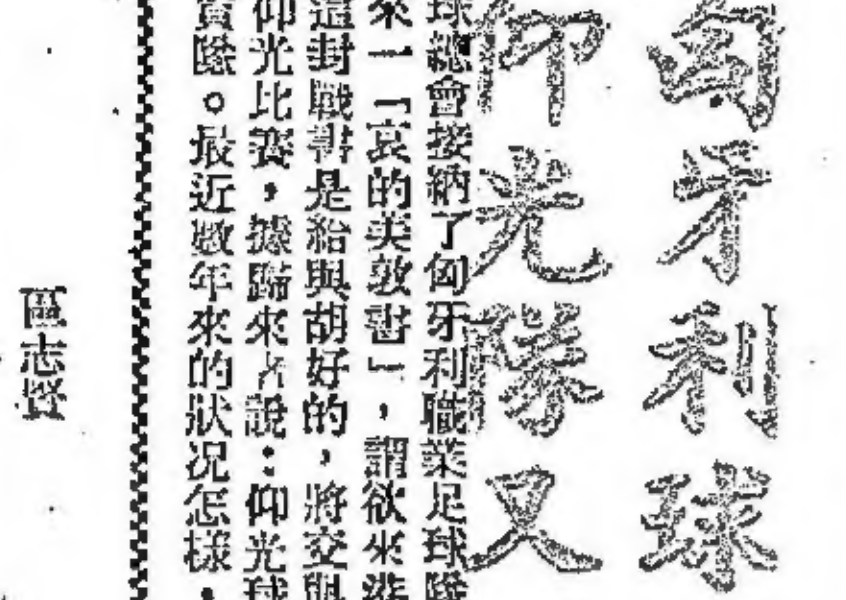 匈牙利球
仰光隊又
球總會接納了匈牙利職業足球隊
來一「哀的美敦書」，謂欲來港
這封戰書是給與胡好的，將交與
仰光比賽，據歸來者說：仰光球
實際。最近數年來的狀況怎樣，
區志賢